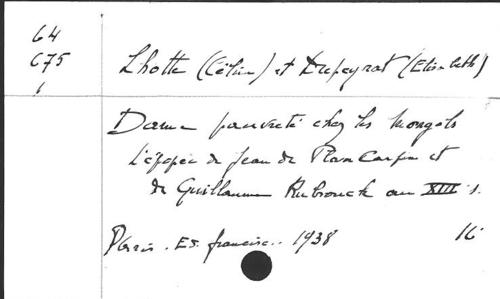 64
675
1
Lhotte (Céline) et Dupeyrat (Elisabeth)
Dame pauvreté chez les Mongols
L'épopée de Jean de Plan Carpin et
de Guillaume Rubrouck au XIII s.
Paris. Ed. francisc.. 1938 16